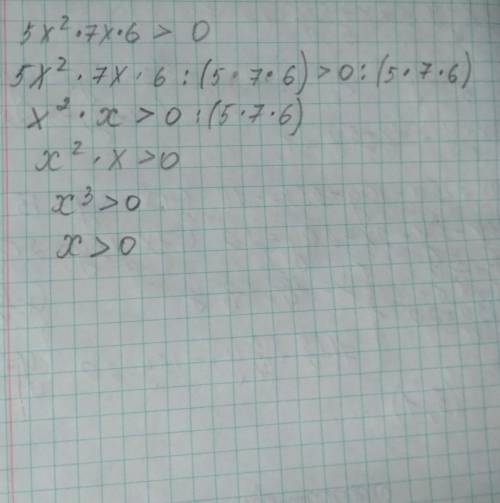 5x² · 7x · 6 > 0
5x² · 7x · 6 : (5 · 7 · 6) > 0 : (5 · 7 · 6)
x² · x > 0 : (5 · 7 · 6)
x² · x > 0
x³ > 0
x > 0